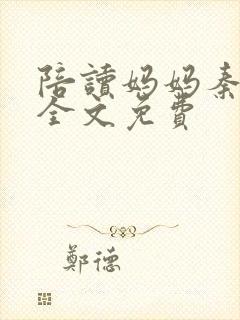 陪讀媽媽秦
全文免費
鄭德